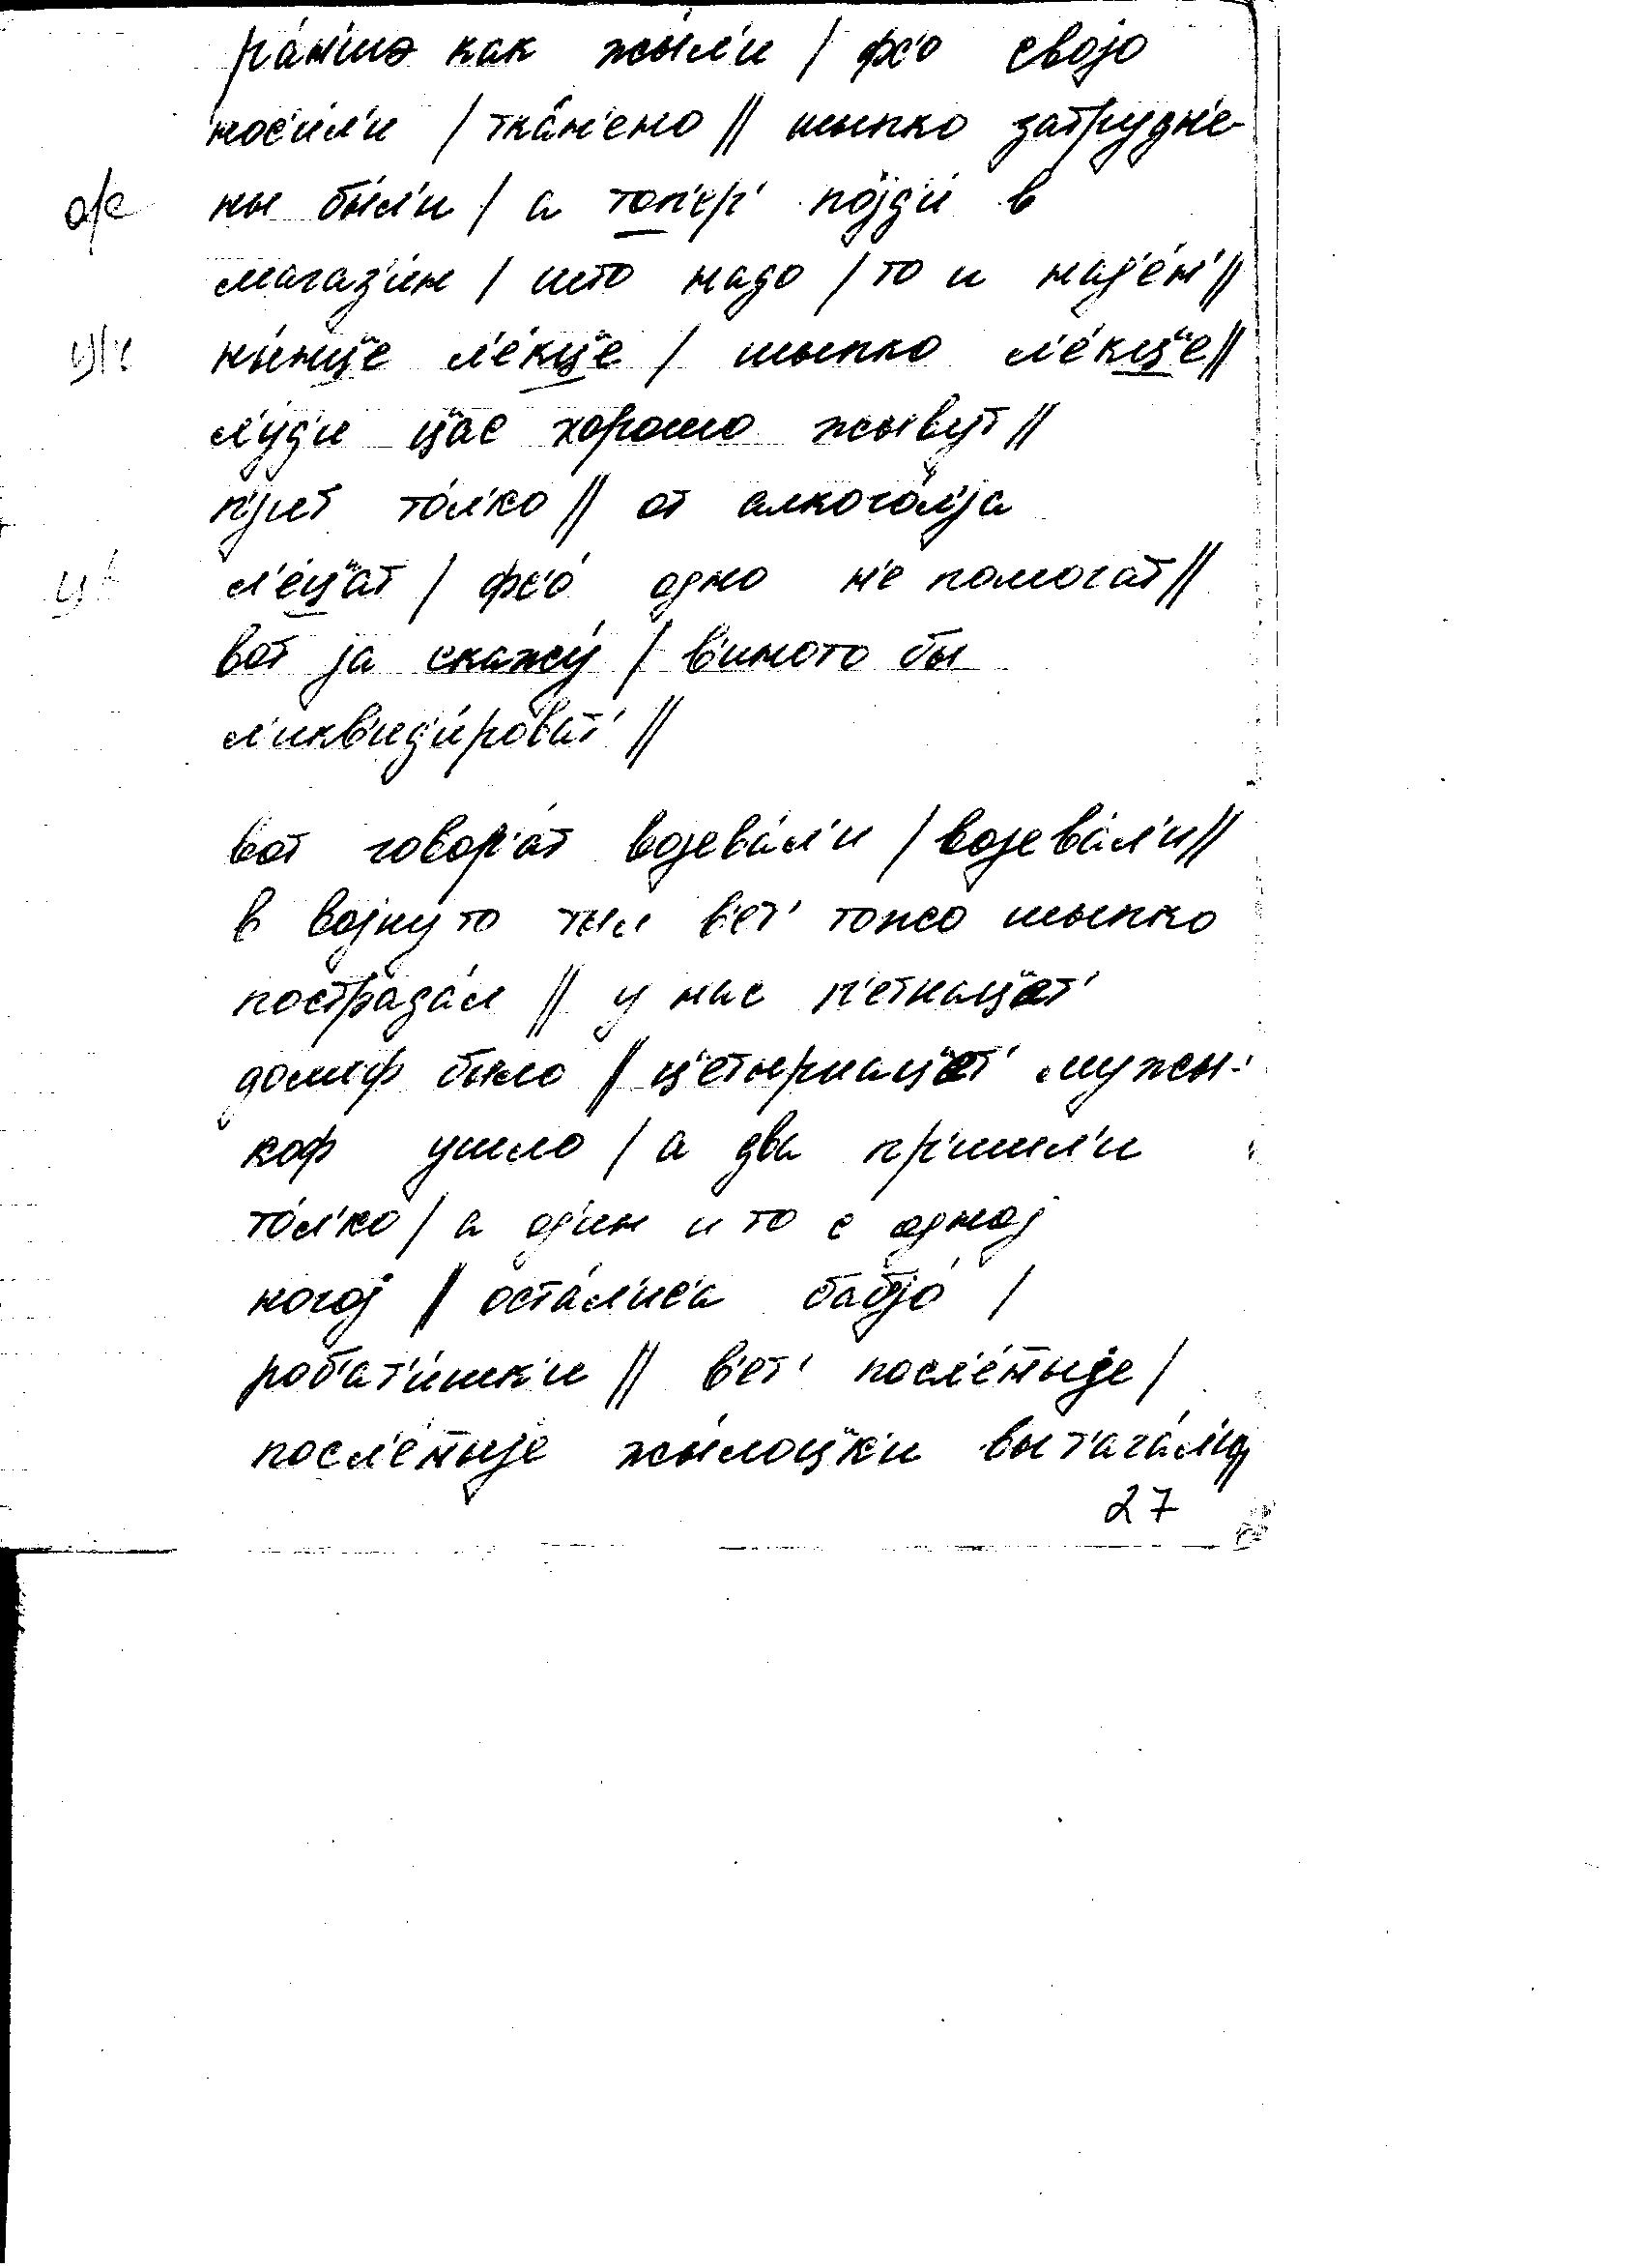 ра́н'шэ как жы́л'и / фс'о својо
нос'ил'и / тка́н'ено // шыпко затрудн'е-
о/е ны бы́л'и / а топ'ер' појд'и́ в
магаз'и́н / што надо / то и над'е́н' //
ц/ч ны́нц"е л'е́кц"е / шыпко л'е́кц"е //
л'у́д'и ц"ас хорошо жывут //
п'јут то́л'ко // от алкого́л'ја
ц л'е́ц"ат / фс'о́ одно н'е помогат //
вот ја скажу́ / в'ино то бы
л'икв'ид'и́роват' //
вот говор'а́т војева́л'и / војева́л'и //
в војну то тыл в'ет' тожо шыпко
пострада́л // у нас п'етнац"ет'
домоф было // ц"етырнац"ет' мужы-
коф ушло / а два пр'ишл'и
то́л'ко / а од'ин и то с одној
ногој // оста́л'ис'а бабјо́ /
роб'ат'и́шк'и // в'ет' посл'е́тныје /
посл'е́тныје жы́лоц"к'и выт'ага́л'и //
27